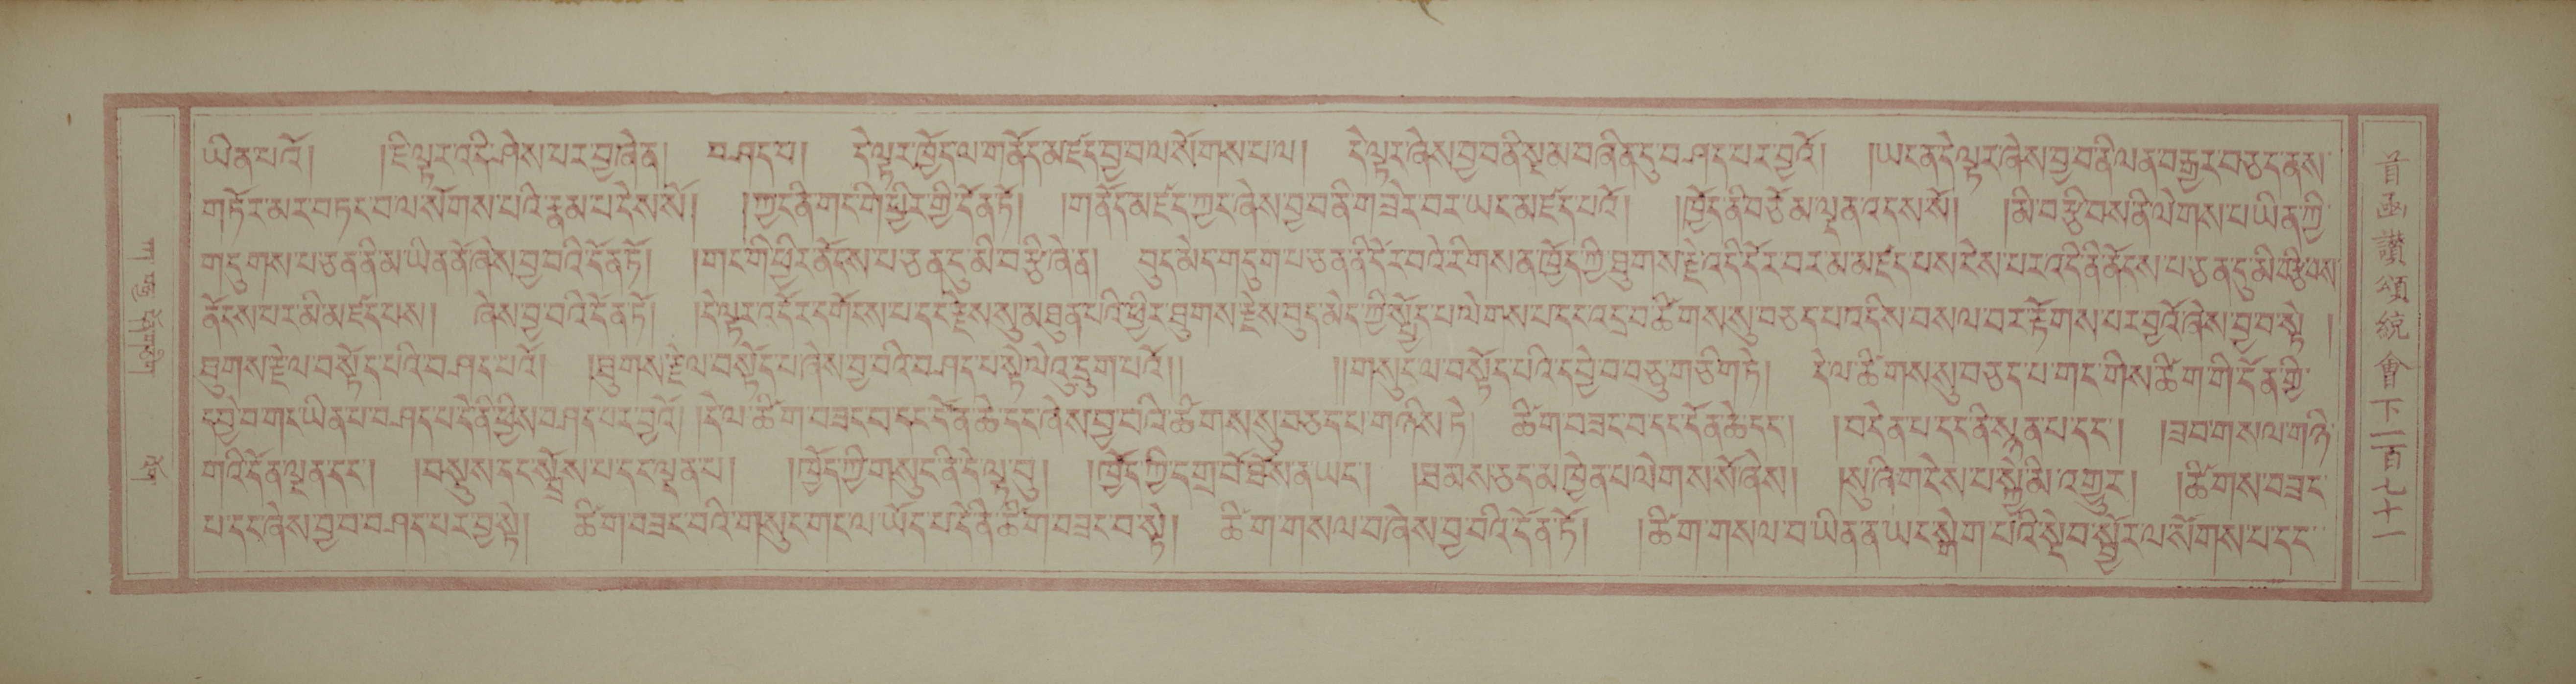 ཡིན་པའོ། །ཇི་ལྟར་འདི་ཤེས་པར་བྱ་ཞེ་ན། བཤད་པ། དེ་ལྟར་ཁྱོད་ལ་གནོད་མཛད་བྱ་བ་ལ་སོགས་པ་ལ། དེ་ལྟར་ཞེས་བྱ་བ་ནི་སྔ་མ་བཞིན་དུ་བཤད་པར་བྱའོ། །ཡང་ན་དེ་ལྟར་ཞེས་བྱ་བ་ནི་ལན་བརྒྱར་བཅད་ནས་
གཏོར་མར་བཏང་བ་ལ་སོགས་པའི་རྣམ་པ་དེས་སོ། །ཀྱང་ནི་གང་གི་ཕྱིར་གྱི་དོན་ཏོ། །གནོད་མཛད་ཀྱང་ཞེས་བྱ་བ་ནི་གཟེར་བར་ཡང་མཛད་པའོ། །ཁྱོད་ནི་བཅོམ་ལྡན་འདས་སོ། །མི་བརྩི་བས་ནི་ལེགས་པ་ཡིན་གྱི་
གདུགས་པ་ཅན་ནི་མ་ཡིན་ནོ་ཞེས་བྱ་བའི་དོན་ཏོ། །གང་གི་ཕྱིར་ནོངས་པ་ཅན་དུ་མི་བརྩི་ཞེ་ན། བུད་མེད་གདུག་པ་ཅན་ནི་དོར་བའི་རིགས་ན་ཁྱོད་ཀྱི་ཐུགས་རྗེ་འདི་དོར་བར་མ་མཛད་པས་དེས་པར་འདི་ནི་ནོངས་པ་ཅན་དུ་མི་བརྩི་བས།
ནོངས་པར་མི་མཛད་པས། ཞེས་བྱ་བའི་དོན་ཏོ། །དེ་ལྟར་འདོར་དགོངས་པ་དང་རྗེས་སུ་མཐུན་པའི་ཕྱིར་ཐུགས་རྗེས་བུད་མེད་ཀྱི་སྤྱོད་པ་ལེགས་པ་དང་འདྲ་བ་ཚིགས་སུ་བཅད་པ་འདིས་བསལ་བར་རྟོགས་པར་བྱའོ་ཞེས་བྱ་བ་སྟེ །
ཐུགས་རྗེ་ལ་བསྟོད་པའི་བཤད་པའོ། །ཐུགས་རྗེ་ལ་བསྟོད་པ་ཞེས་བྱ་བའི་བཤད་པ་སྟེ་ལེའུ་དྲུག་པའོ།། །།གསུང་ལ་བསྟོད་པའི་དབྱེ་བ་བཅུ་གཅིག་ཏེ། དེ་ལ་ཚིགས་སུ་བཅད་པ་གང་གིས་ཚིག་གི་དོན་གྱི་
དབྱེ་བ་གང་ཡིན་པ་བཤད་པ་དེ་ནི་ཕྱིས་བཤད་པར་བྱའོ། །དེ་ལ་ཚིག་བཟང་བ་དང་དོན་ཆེ་དང་ཞེས་བྱ་བའི་ཚིགས་སུ་བཅད་པ་གཉིས་ཏེ། ཚིག་བཟང་བ་དང་དོན་ཆེ་དང་། །བདེན་པ་དང་ནི་སྙན་པ་དང་། །ཟབ་གསལ་གཉི་
གའི་དོན་ལྡན་དང་། །བསྡུས་དང་སྤྲོས་པ་དང་ལྡན་པ། །ཁྱོད་ཀྱི་གསུང་ནི་དེ་ལྟ་བུ། །ཁྱོད་ཀྱི་དགྲ་བོ་ཐོས་ན་ཡང་། །ཐམས་ཅད་མཁྱེན་པ་ལེགས་སོ་ཞེས། །སུ་ཞིག་ངེས་པ་སྐྱེ་མི་འགྱུར། །ཚིགས་བཟང་
པ་དང་ཞེས་བྱ་བ་བཤད་པར་བྱ་སྟེ། ཚིག་བཟང་བའི་གསུང་གང་ལ་ཡོད་པ་དེ་ནི་ཚིག་བཟང་བ་སྟེ། ཚིག་གསལ་བ་ཞེས་བྱ་བའི་དོན་ཏོ། །ཚིག་གསལ་བ་ཡིན་ན་ཡང་སྒྲེག་པའི་སྡེབ་སྦྱོར་ལ་སོགས་པ་དང་
首函讚頌統會下一百七十一